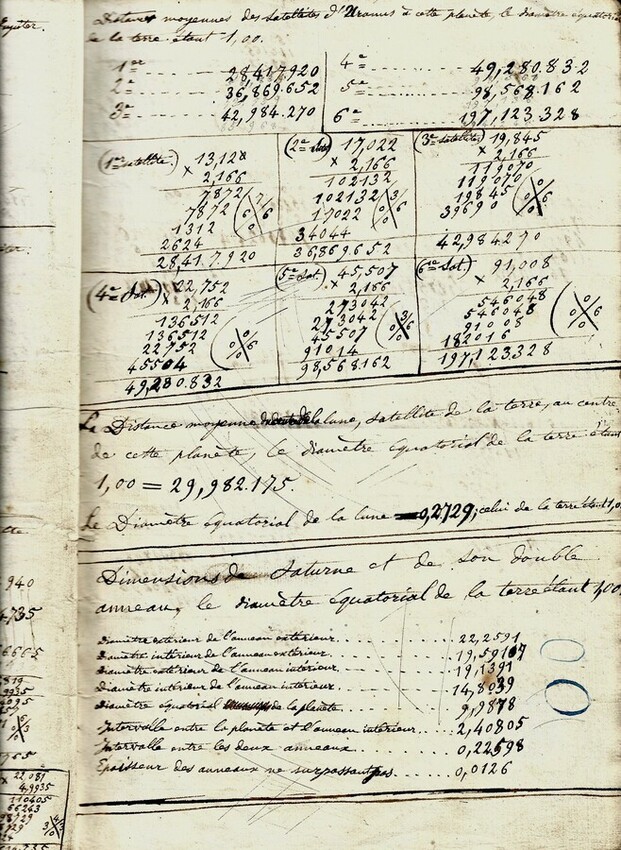 Distances moyennes des satellites d'Uranus à cette planète le diamètre équatorial
de la terre étant 1,00.
1er ........ 28,417.920
2e ........ 36,869.652
3e ........ 42,984.270
4e ........ 49,280.832
5e ........ 98,568.162
6e ........ 197,123.328
(1er satellite)
13,12
× 2,166
7872
7872
1312
2624
28,417.920
(2e sat.)
17,022
× 2,166
102132
102132
17022
34044
36,869.652
(3e satellite)
19,845
× 2,166
119070
119070
19845
39690
42,984270
(4e Sat.)
22,752
× 2,166
136512
136512
22752
45504
49,280.832
(5e Sat.)
45,507
× 2,166
273042
273042
45507
91014
98,568.162
(6e Sat.)
91,008
× 2,166
546048
546048
91008
182016
197,123.328
La Distance moyenne de la lune, satellite de la terre, au centre
de cette planète, le diamètre équatorial de la terre étant
1,00 = 29,982.175.
Le Diamètre équatorial de la lune = 0,2729; celui de la terre étant 1,0
Dimensions de Saturne et de son double
anneau, le diamètre équatorial de la terre étant 1,00.
Diamètre extérieur de l'anneau extérieur ........ 22,2591
Diamètre intérieur de l'anneau extérieur ........ 19,5910
Diamètre extérieur de l'anneau intérieur ........ 19,1391
Diamètre intérieur de l'anneau intérieur ........ 14,8039
Diamètre équatorial de la planète ........ 9,9878
Intervalle entre la planète et l'anneau intérieur ........ 2,40805
Intervalle entre les deux anneaux ........ 0,22598
Epaisseur des anneaux ne surpassant pas ........ 0,0126
940
4,735
6665
22,081
4,9935
110405
66243